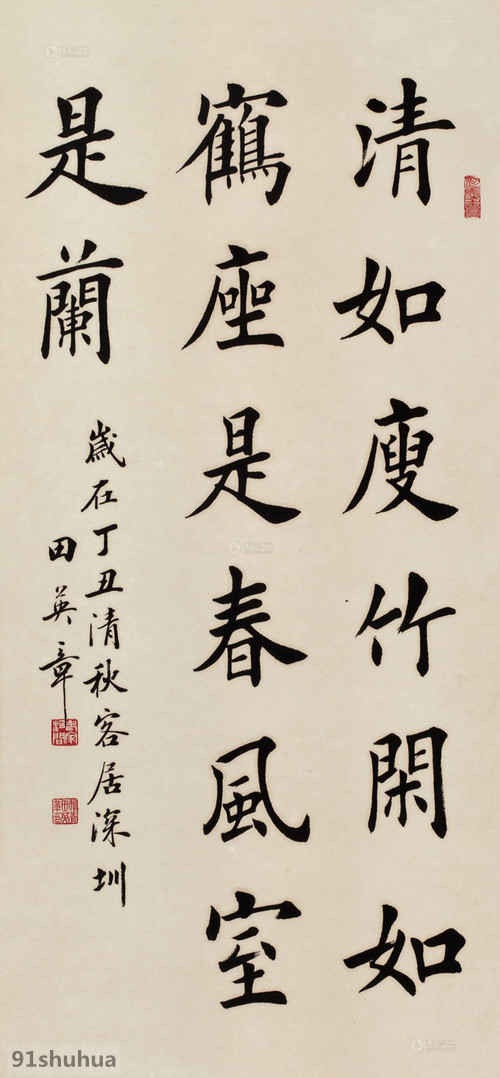 清如廋竹閑如
鶴座是春風室
是蘭
歲在丁丑清秋客居深圳
田英章
91shuhua